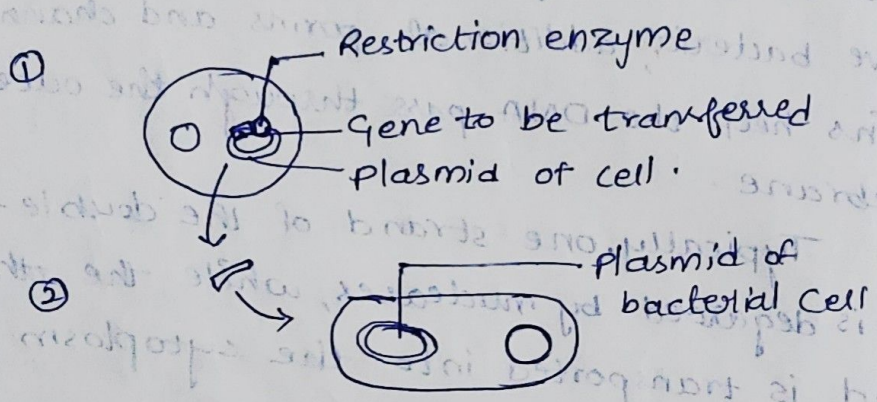 ① Restriction enzyme
Gene to be transferred
plasmid of cell.
② plasmid of
bacterial cell